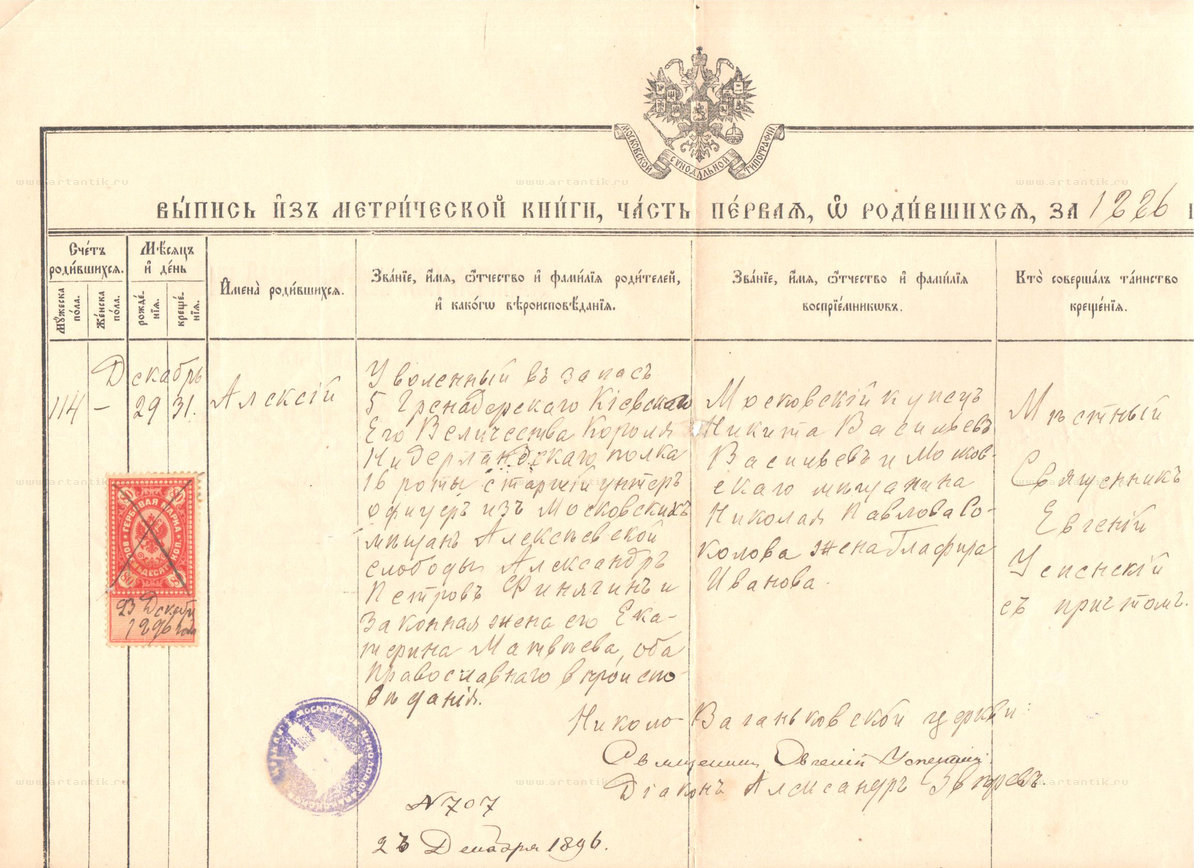 МОСКОВСКОЙ СѴНОДАЛЬНОЙ ТИПОГРАФІИ
www.artantik.ru www.artantik.ru www.artantik.ru
ВЫ́ПИСЬ И҆ЗЪ МЕТРИ́ЧЕСКОЙ КНИ́ГИ, ЧА́СТЬ ПЕ́РВАѦ, Ѡ҆ РОДИ́ВШИХСѦ, ЗА 1886
Сче́тъ родившихсѧ.
Мꙋ́жеска по́ла.
Же́нска по́ла.
Мѣ́сѧцъ и҆ де́нь
рожде́нїѧ.
креще́нїѧ.
И҆мена̀ роди́вшихсѧ.
Зва́нїе, и҆́мѧ, ѿ́чество и҆ фами́лїѧ роди́телей,
и҆ како́гѡ вѣроисповѣ́данїѧ.
Зва́нїе, и҆́мѧ, ѿ́чество и҆ фами́лїѧ
воспрїе́мникѡвъ.
Кто̀ соверша́лъ та́инство
креще́нїѧ.
114
–
Декабрь
29 31.
Алексій
Уволенный въ запасъ
5 Гренадерскаго Кіевскаго
Его Величества Короля
Нидерландскаго полка
16 роты старшій унтеръ
офицеръ изъ Московскихъ
мѣщанъ Алексѣевской
слободы Александръ
Петровъ Финягинъ и
законная жена его Ека-
терина Матвѣева, оба
православнаго вѣроиспо-
вѣданія.
Московскій купецъ
Никита Васильевъ
Васильевъ и Москов-
скаго мѣщанина
Николая Павлова Со-
колова жена Глафира
Иванова.
Мѣстный
Священникъ
Евгеній
Успенскій
съ причтомъ.
ГЕРБОВАЯ МАРКА
23 Декабря
1896 года
Николо-Ваганьковской церкви:
Священникъ Евгеній Успенскій
Діаконъ Александръ Звѣревъ.
N 707
23 Декабря 1896.